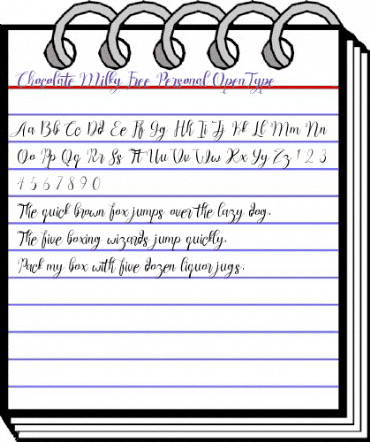 Chocolate Milky Free Personal OpenType
Aa Bb Cc Dd Ee Ff Gg Hh Ii Jj Kk Ll Mm Nn
Oo Pp Qq Rr Ss Tt Uu Vv Ww Xx Yy Zz 1 2 3
4 5 6 7 8 9 0
The quick brown fox jumps over the lazy dog.
The five boxing wizards jump quickly.
Pack my box with five dozen liquor jugs.